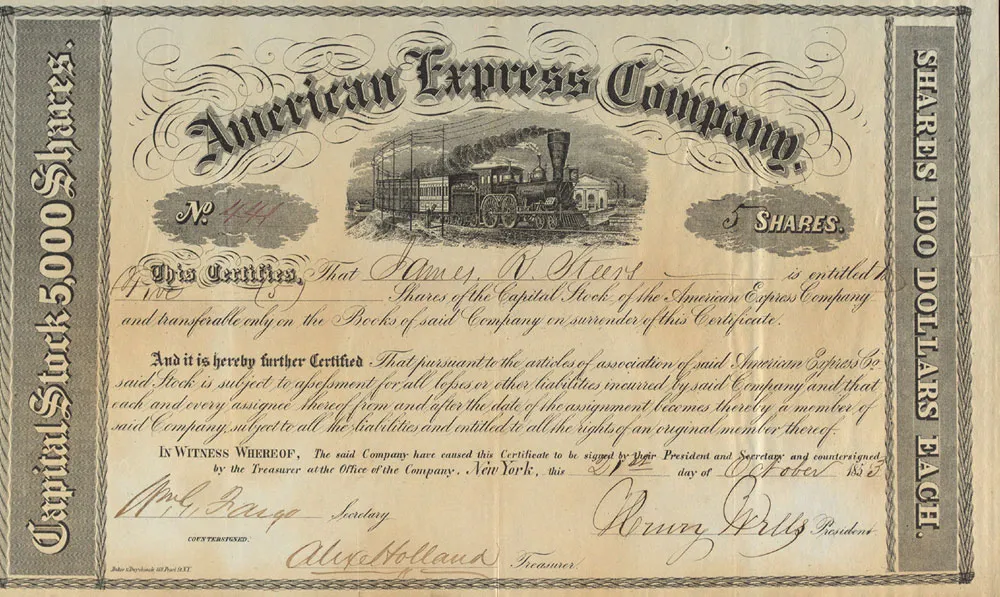 Capital Stock 5,000 Shares.
American Express Company.
SHARES 100 DOLLARS EACH.
No. 441
5 SHARES.
This Certifies, That James R. Steers is entitled to
Five (5)
Shares of the Capital Stock of the American Express Company
and transferable only on the Books of said Company on surrender of this Certificate.
And it is hereby further Certified That pursuant to the articles of association of said American Express Co.
said Stock is subject to assessment for all losses or other liabilities incurred by said Company and that
each and every assignee thereof from and after the date of the assignment becomes thereby a member of
said Company, subject to all the liabilities and entitled to all the rights of an original member thereof.
IN WITNESS WHEREOF, The said Company have caused this Certificate to be signed by their President and Secretary and countersigned
by the Treasurer at the Office of the Company, New York, this 21st day of October 1853
Wm. G. Fargo Secretary
Henry Wells President
COUNTERSIGNED.
Alex Holland Treasurer.